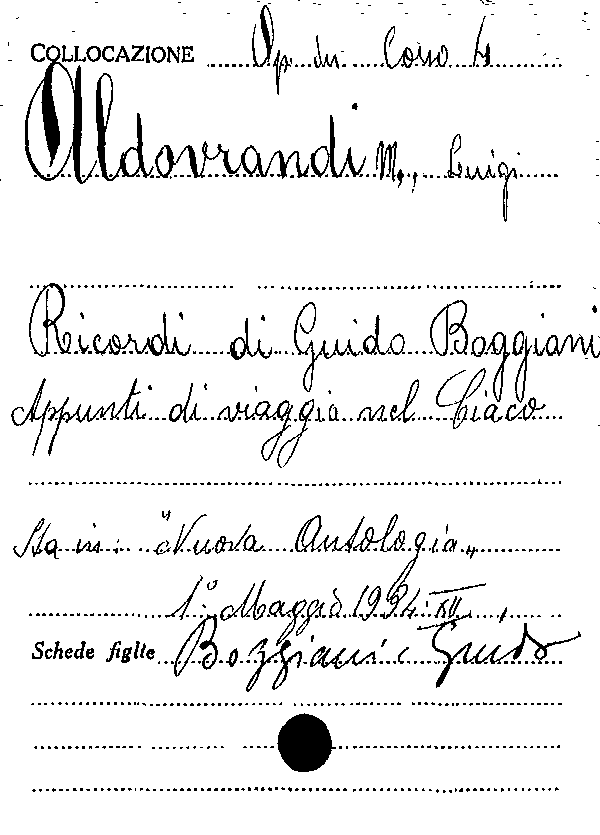 COLLOCAZIONE Op. in Corso 4
Aldovrandi M., Luigi
Ricordi di Guido Boggiani
Appunti di viaggio nel Ciaco
Sta in: "Nuova Antologia„
1° Maggio 1934. XII
Schede figlie Boggiani Guido